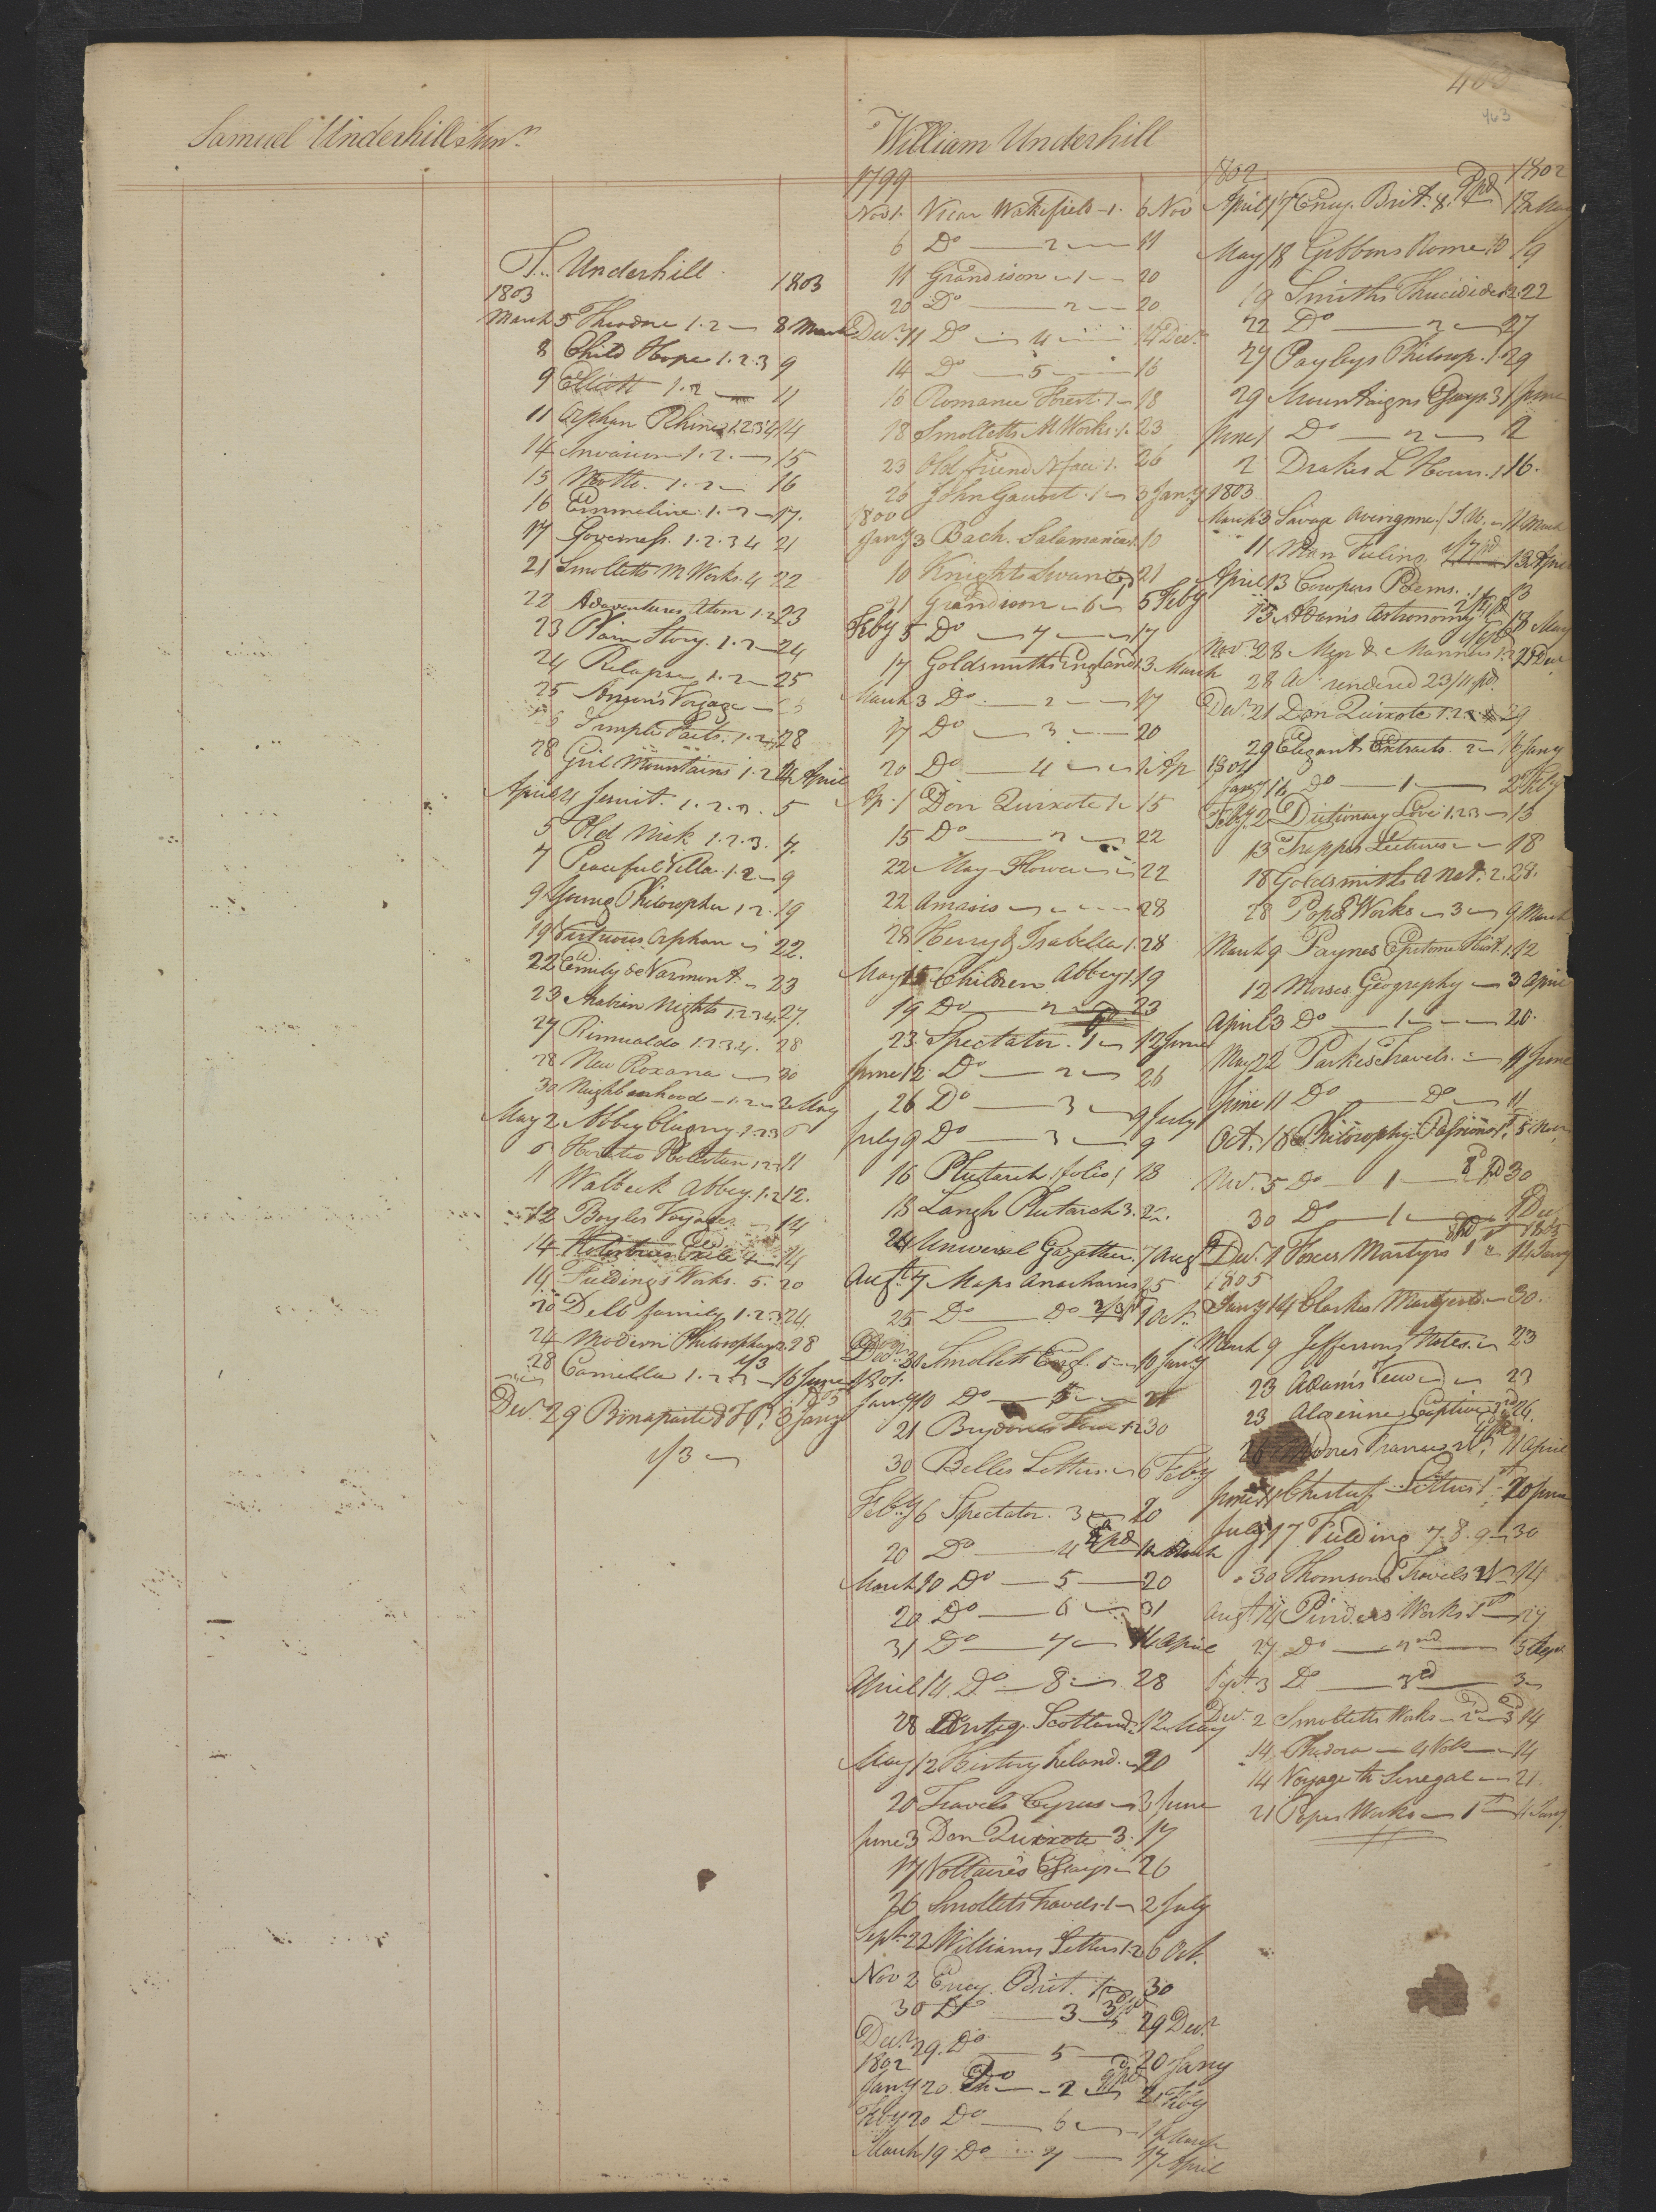 403
463
Samuel Underhill Junr
William Underhill
T. Underhill
1803 1803
March 5 Theodore 1.2 8 March
8 Child Hope 1.2.3 9
9 Elliott 1.2 11
11 Orphan Rhine 1.2.3.4 14
14 Invasion 1.2. 15
15 Motto. 1.2 16
16 Emmeline. 1.2 17.
17 Governess. 1.2.3 4 21
21 Smolletts M Works. 4 22
22 Adventures Atom 1.2 23
23 Plain Story. 1.2 24
24 Relapse 1.2 25
25 Anson's Voyage
Simple Facts. 1.2 28
28 Girl Mountains 1.2 April
April 4 Jesuit. 1.2.3. 5
5 Old Nick 1.2.3. 7.
7 Peaceful Villa. 1.2 9
9 Young Philosopher 1.2. 19
19 Virtuous Orphan 22.
22 Emily de Varmont. 23
23 Arabian Nights 1.2.3.4. 27.
27 Rinualdo 1.2.3.4. 28
28 New Roxana 30
30 Neighbourhood 1.2 2 May
May 2 Abbey Clugny. 1.2.3 6
6 Horatio Holestun 1.2.3 11
11 Walbeck Abbey. 1.2 12.
12 Boyles Voyages 14
14 Exile 4 14
14 Fieldings Works. 5. 20
20 Delb family 1.2.3 24
24 Modern Philosophers 2. 28
28 Camilla 1.2.3 1/3 16 June
Decr. 29 Bonaparte 3 Jany
1/3
1799
Nov 1. Vicar Wakefield 1. 6 Nov
6 Do 2 11
11 Grandison 1 20
20 Do 2 20
Decr. 11 Do 4 14 Decr.
14 Do 5 16
16 Romance Forest. 1 18
18 Smolletts M Works. 1. 23
23 Old friend N face 1. 26
26 John Gaunt. 1 3 Jany
1800
Jany 3 Bach. Salamanca 1. 10
10 Knights Swan 21
21 Grandison 6 5 Feby
Feby 5 Do 7 17
17 Goldsmiths England 1. 3 March
March 3 Do. 2 17
17 Do 3 20
20 Do 4 1 Ap
Ap. 1 Don Quixote 1. 15
15 Do 2 22
22 May Flower 22
22 Amasis 28
28 Henry & Isabella 1. 28
May 15 Children Abbey 1. 19
19 Do 2 23
23 Spectator. 1 12 June
June 12 Do 2 26
26 Do 3 9 July
July 9 Do 3 9
16 Plutarch (folio) 18
18 Langh Plutarch 3. 24.
24 Universal Gazatheer. 7 Aug
Augt. 7 Maps Anacharsis 25
25 Do Do 1 Oct.
Decr. 30 Smolletts Engl. 5 10 Jany
1801.
Jany 10 Do 21
21 Brydones Tour 1.2 30
30 Belles Letters. 6 Feby
Feby 6 Spectator. 3 20
20 Do 4 10 March
March 10 Do 5 20
20 Do 6 31
31 Do 7 14 April
April 14 Do 8 28
28 Antiq. Scotland 12 May
May 12 History Ireland. 20
20 Travels Cyrus 3 June
June 3 Don Quixote 3. 17
17 Voltaires Essays 26
26 Smollets Travels. 1 2 July
Sept. 22 Williams Letters 1.2 6 Oct.
Nov 2 Ency. Brit. 30
30 Do 3 29 Decr
Decr. 29. Do 5 20 Jany
1802
Jany 20 Do 2 Feby
Feby 20 Do 6 March
March 19 Do 7 17 April
1802 1802
April 17 Ency. Brit. 8. 18 May
May 18 Gibbons Rome 10 19
19 Smiths Thucidides 1.2. 22
22 Do 2 27
27 Payleys Philosop. 1. 29
29 Mountaigns Essays 3 1 June
June 1 Do 2 2
2 Drakes L Hours. 1 16.
1803
March 3 Savage 11 March
11 Man Feeling 13 April
April 13 Cowpers Poems. 13
13 Adams Astronomy 18 May
Nov. 28 Men & Manners 1.2 21 Decr
28 Ac. rendered 23/11 pd.
Decr. 21 Don Quixote 1.2. 29
29 Elegant Extracts. 2 16 Jany
1804
Jany 16 Do 1 2 Feby
Feby. 2 Dictionary Love 1.2.3 13
13 Trapps Lectures 18
18 Goldsmiths A Nat. 2. 28.
28 Popes Works 3 9 March
March 9 Paynes Epitome Hist. 1. 12
12 Morses Geography 3 April
April 3 Do 1 20.
May 22 Parkes Travels. 11 June
June 11 Do Do 11
Oct. 18 Philosophy Passions 1st. 5 Nov.
Nov. 5 Do 1 30
30 Do 1 Decr
Decr. 7 Foxes Martyrs 1st 14 Jany
1805
Jany 14 Clarkes Martyrs 30.
March 9 Jeffersons Notes. 23
23 Adams View 23
23 Algerine Captive 26.
26 Moores France 11 April
June 11 Chesterf. Letters 1st. 20 June
July 17 Fielding 7. 8. 9 30
30 Thomsons Travels 14
Augt 14 Pindars Works 1st 27
27 Do 2nd 3 Sept
Sept 3 Do 3rd 3
Decr. 2 Smolletts Works 2d 3d 14
14 Phedora 4 Vols 14
14 Voyage to Senegal 21
21 Popes Works 1st 4 Jany